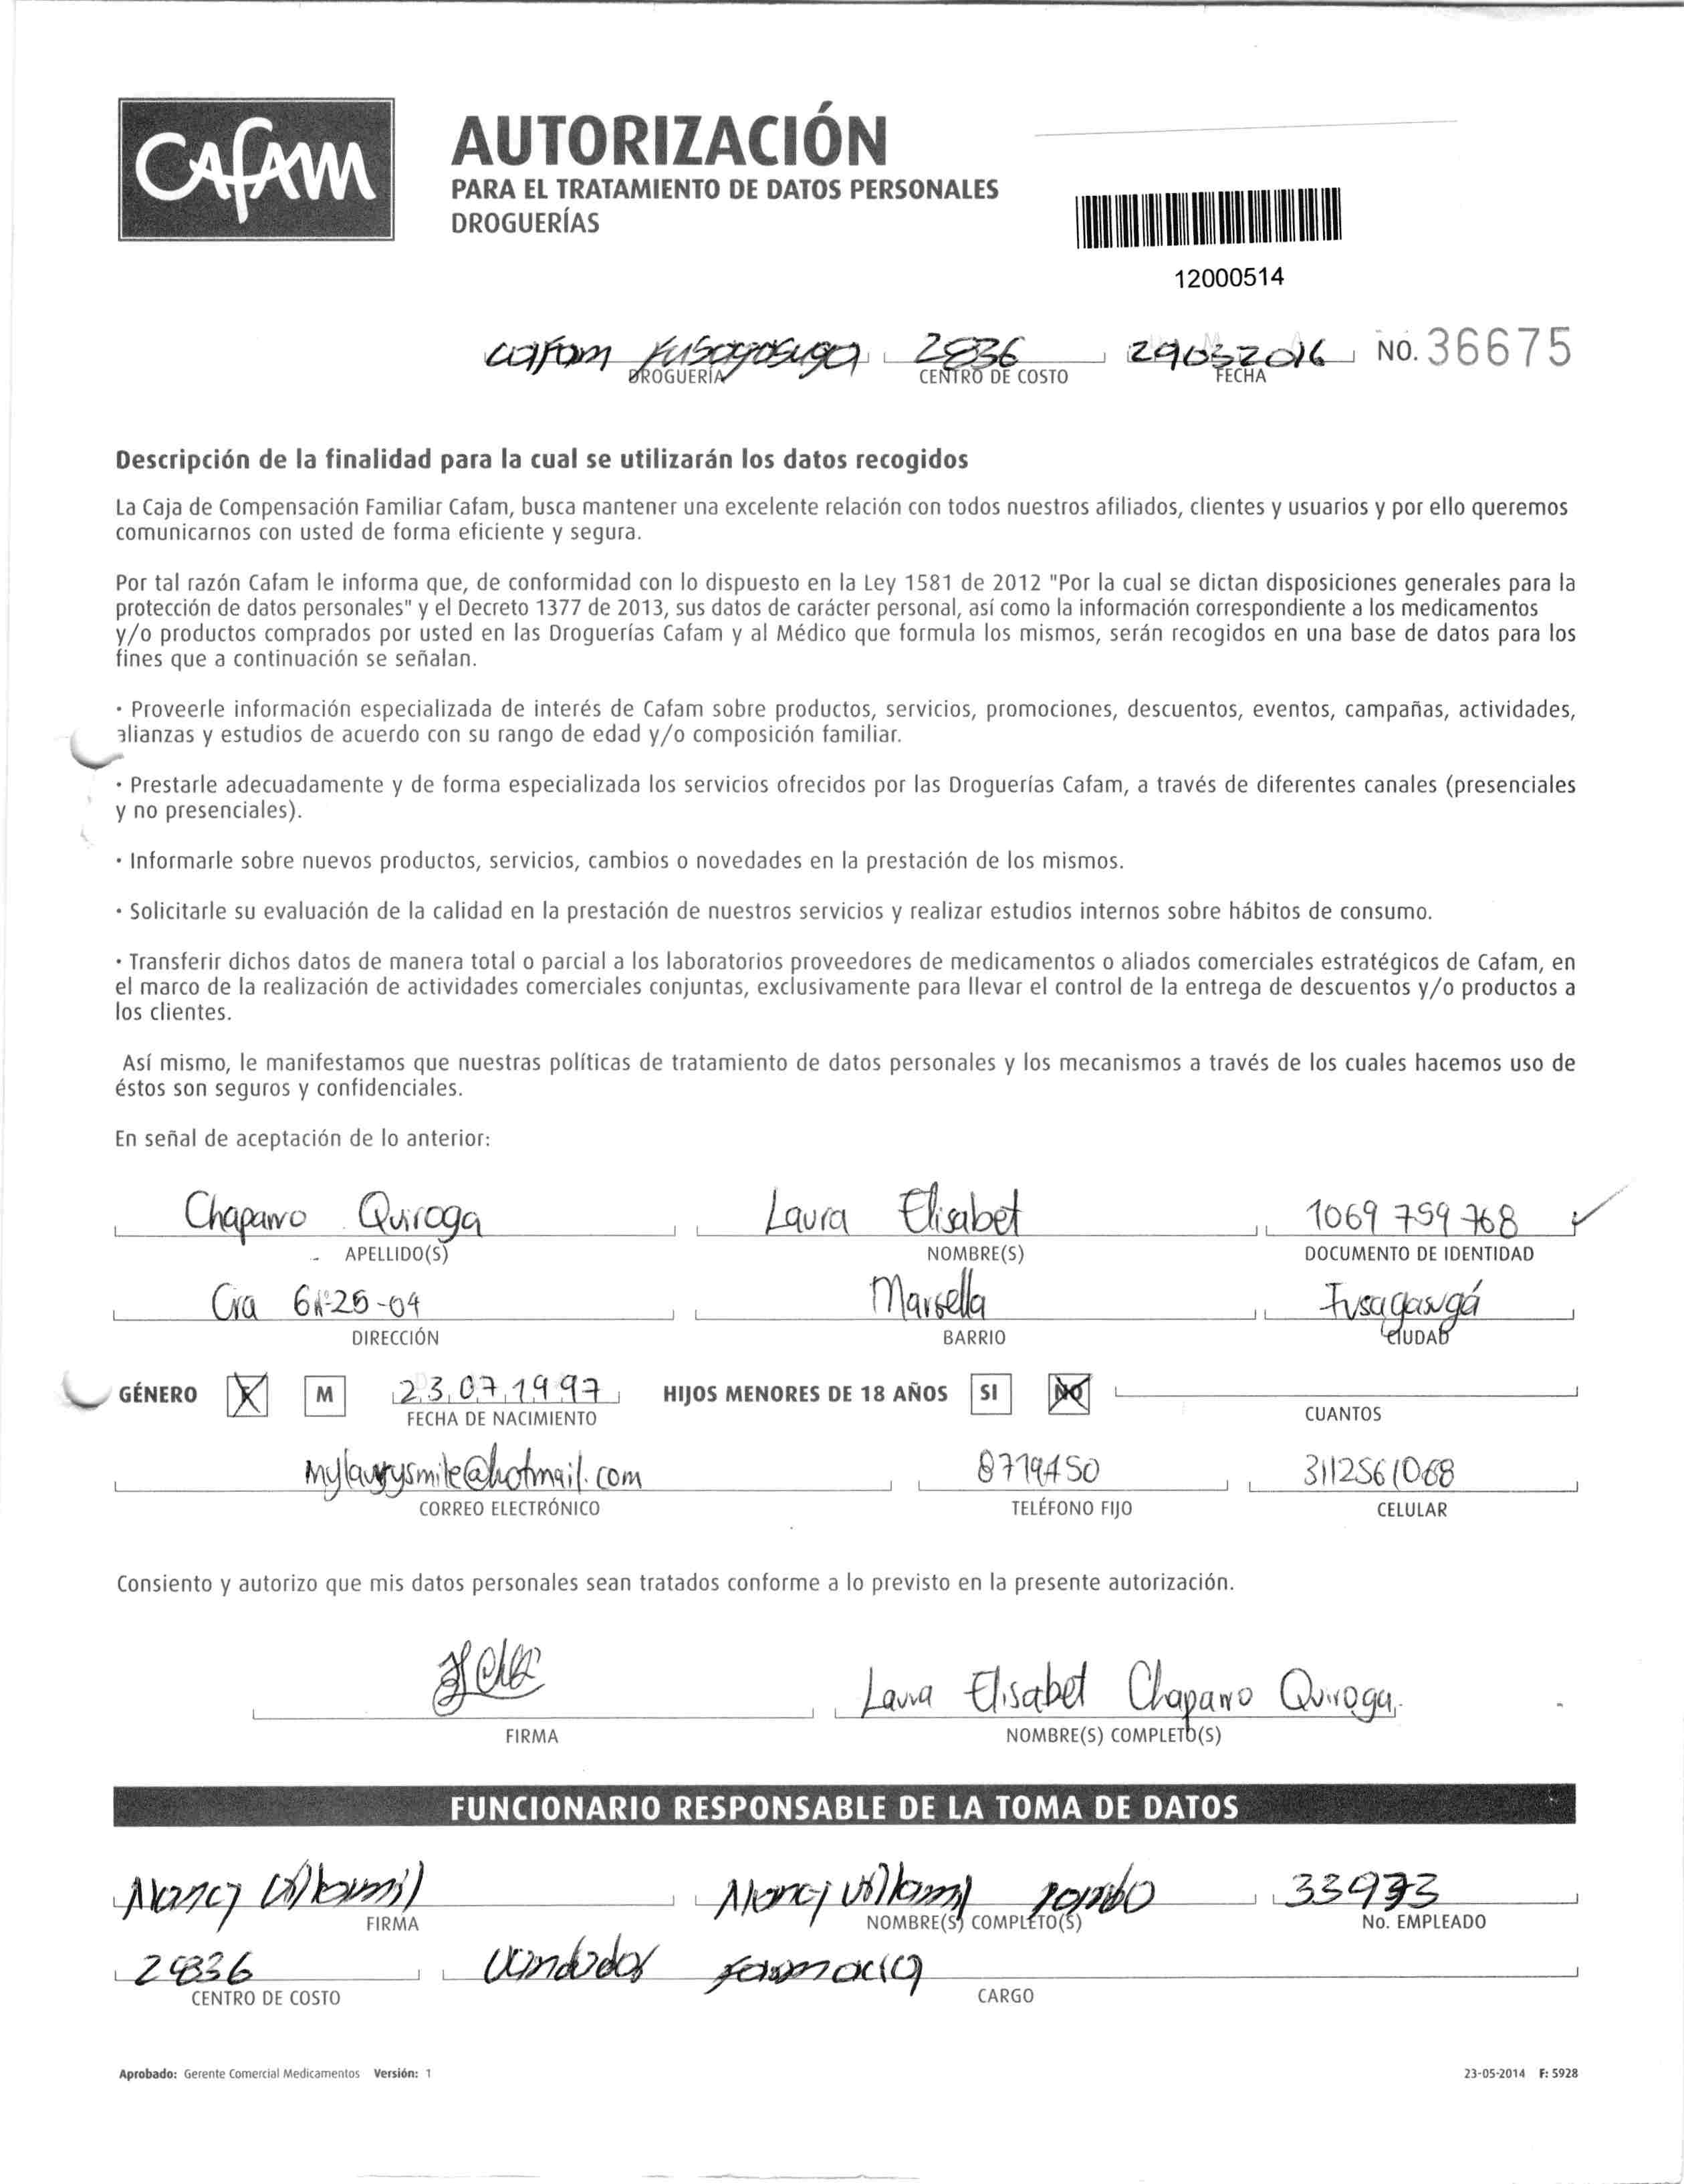 CAFAM
AUTORIZACIÓN
PARA EL TRATAMIENTO DE DATOS PERSONALES
DROGUERÍAS
12000514
cafam fusagasuga 2836 29032016 NO. 36675
DROGUERÍA CENTRO DE COSTO FECHA
Descripción de la finalidad para la cual se utilizarán los datos recogidos
La Caja de Compensación Familiar Cafam, busca mantener una excelente relación con todos nuestros afiliados, clientes y usuarios y por ello queremos
comunicarnos con usted de forma eficiente y segura.
Por tal razón Cafam le informa que, de conformidad con lo dispuesto en la Ley 1581 de 2012 "Por la cual se dictan disposiciones generales para la
protección de datos personales" y el Decreto 1377 de 2013, sus datos de carácter personal, así como la información correspondiente a los medicamentos
y/o productos comprados por usted en las Droguerías Cafam y al Médico que formula los mismos, serán recogidos en una base de datos para los
fines que a continuación se señalan.
· Proveerle información especializada de interés de Cafam sobre productos, servicios, promociones, descuentos, eventos, campañas, actividades,
alianzas y estudios de acuerdo con su rango de edad y/o composición familiar.
· Prestarle adecuadamente y de forma especializada los servicios ofrecidos por las Droguerías Cafam, a través de diferentes canales (presenciales
y no presenciales).
· Informarle sobre nuevos productos, servicios, cambios o novedades en la prestación de los mismos.
· Solicitarle su evaluación de la calidad en la prestación de nuestros servicios y realizar estudios internos sobre hábitos de consumo.
· Transferir dichos datos de manera total o parcial a los laboratorios proveedores de medicamentos o aliados comerciales estratégicos de Cafam, en
el marco de la realización de actividades comerciales conjuntas, exclusivamente para llevar el control de la entrega de descuentos y/o productos a
los clientes.
Así mismo, le manifestamos que nuestras políticas de tratamiento de datos personales y los mecanismos a través de los cuales hacemos uso de
éstos son seguros y confidenciales.
En señal de aceptación de lo anterior:
Chaparro Quiroga Laura Elisabet 1069 759 768
APELLIDO(S) NOMBRE(S) DOCUMENTO DE IDENTIDAD
Cra Marsella Fusagasugá
DIRECCIÓN BARRIO CIUDAD
GÉNERO F M 23 07 1997 HIJOS MENORES DE 18 AÑOS SI NO
FECHA DE NACIMIENTO CUANTOS
8719450 3112561068
CORREO ELECTRÓNICO TELÉFONO FIJO CELULAR
Consiento y autorizo que mis datos personales sean tratados conforme a lo previsto en la presente autorización.
Laura Elisabet Chaparro Quiroga.
FIRMA NOMBRE(S) COMPLETO(S)
FUNCIONARIO RESPONSABLE DE LA TOMA DE DATOS
Nancy Villamil Nancy Villamil
FIRMA NOMBRE(S) COMPLETO(S) No. EMPLEADO
Vendedor farmacia
CENTRO DE COSTO CARGO
Aprobado: Gerente Comercial Medicamentos Versión: 1 23-05-2014 F: 5928